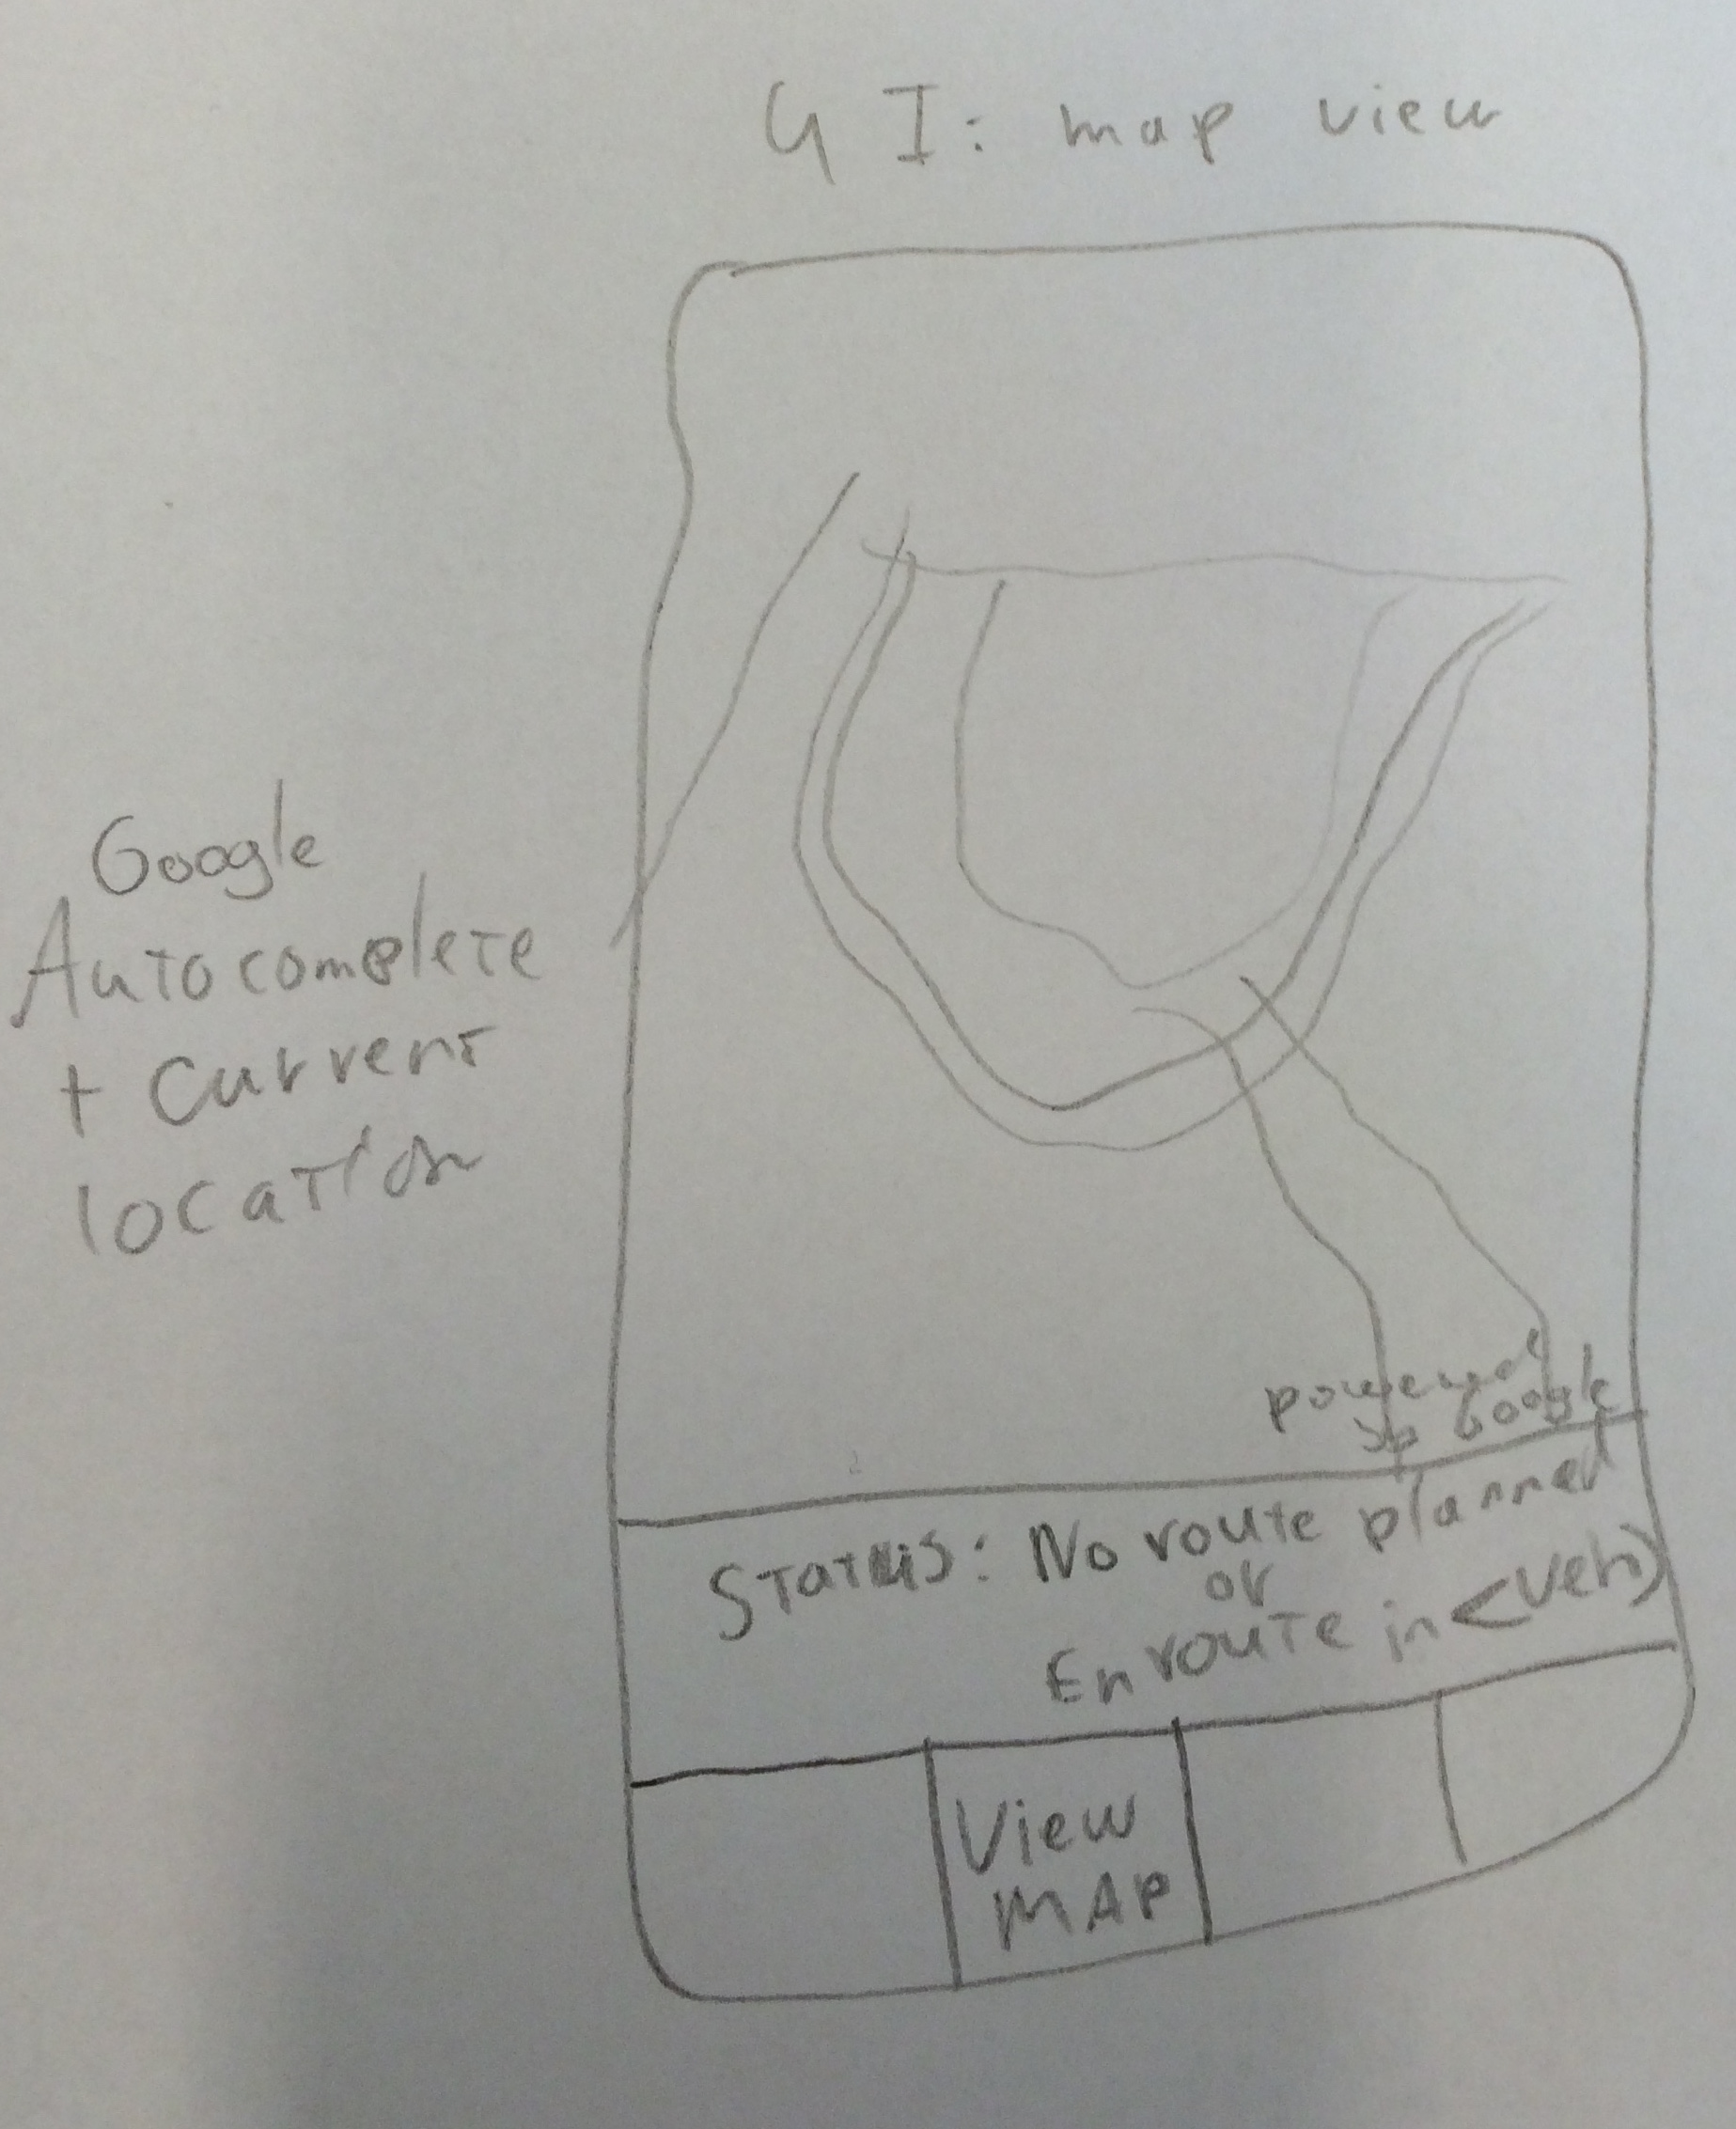 4 I: map view
Google
Autocomplete
+ Current
location
powered
by Google
Status: No route planned
or
En route in <veh>
View
MAP